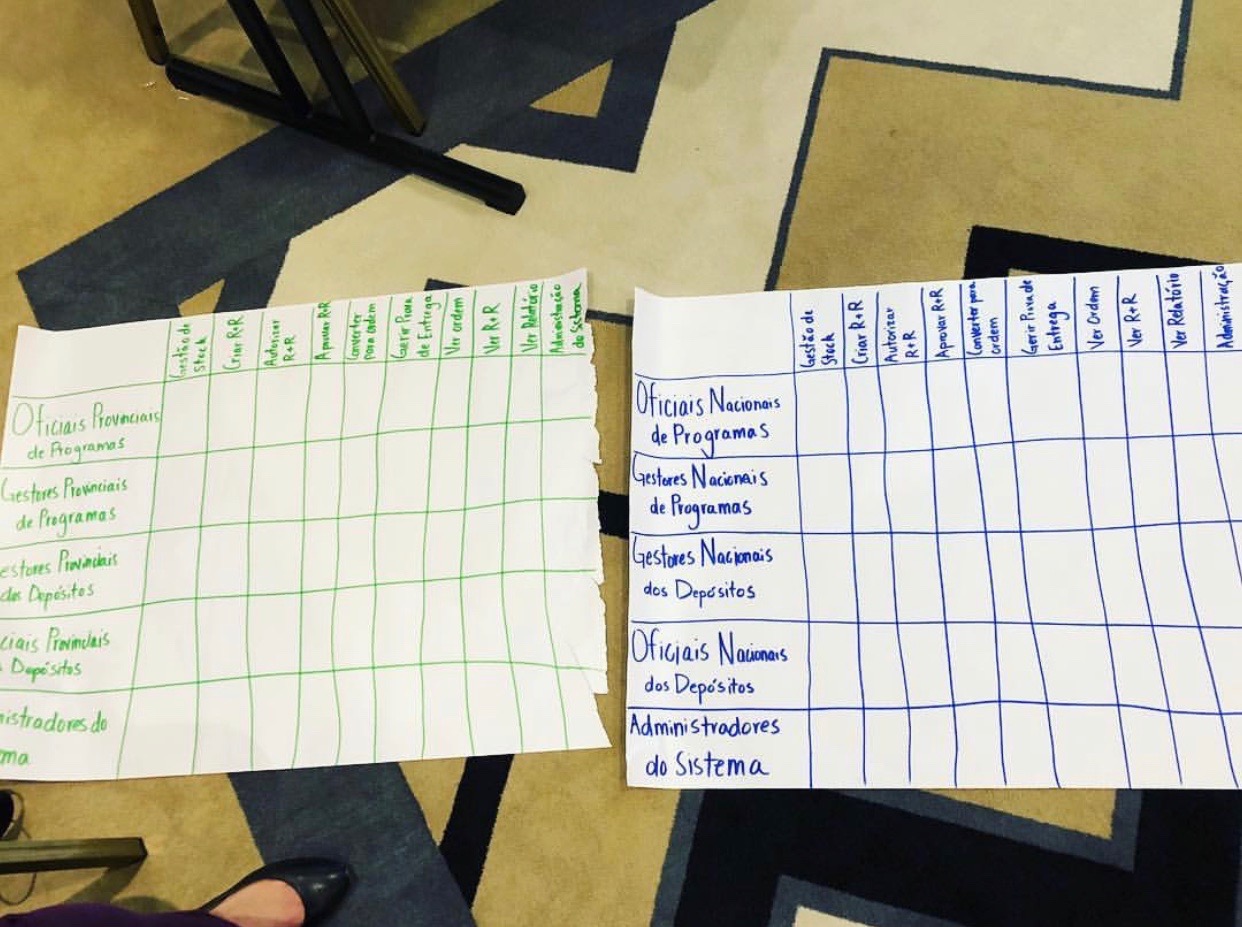 Gestão de
Stock
Criar R+R
Autorizar
R+R
Aprovar R+R
Converter
para ordem
Gerir Prova
de Entrega
Ver ordem
Ver R+R
Ver Relatório
Administração
do Sistema
Oficiais Provinciais
de Programas
Gestores Provinciais
de Programas
estores Provinciais
dos Depósitos
ciais Provinciais
Depósitos
nistradores do
ma
Gestão de
Stock
Criar R+R
Autorizar
R+R
Aprovar R+R
Converter para
ordem
Gerir Prova de
Entrega
Ver Ordem
Ver R+R
Ver Relatório
Administração
Oficiais Nacionais
de Programas
Gestores Nacionais
de Programas
Gestores Nacionais
dos Depósitos
Oficiais Nacionais
dos Depósitos
Administradores
do Sistema